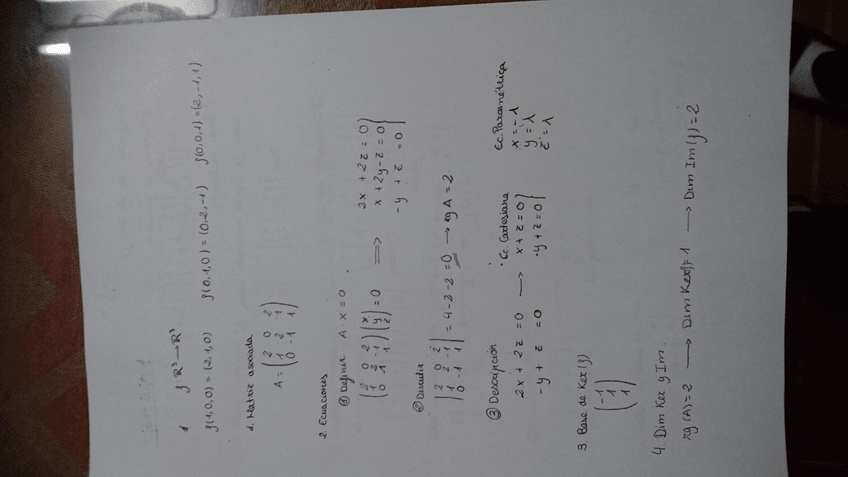 1 f: R³ → R³
f(1,0,0) = (2,1,0) f(0,1,0) = (0,2,-1) f(0,0,1) = (2,-1,1)
1. Matriz asociada
A = (2 0 2
1 2 -1
0 -1 1)
2. Ecuaciones
① Definir A X = 0
(2 0 2
1 2 -1
0 -1 1) (x
y
z) = 0 ⟹ 2x + 2z = 0
x + 2y - z = 0
-y + z = 0}
② Discutir
|2 0 2
1 2 -1
0 -1 1| = 4 - 2 - 2 = 0 → rg A = 2
③ Descripción
2x + 2z = 0
-y + z = 0 → Ec. Cartesiana
x + z = 0
-y + z = 0}
Ec. Paramétrica
x = -1
y = 1
z = 1
3. Base de Ker(f)
(-1
1
1)
4. Dim Ker y Im.
rg(A) = 2 → Dim Ker f = 1 → Dim Im(f) = 2